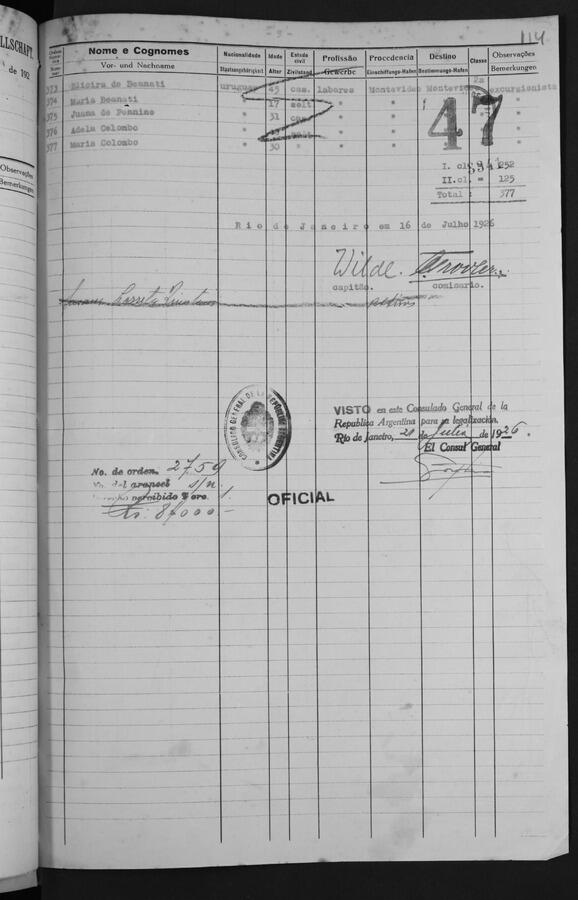 - 5 -
114
LLSCHAFT.
de 192
Observações
Bemerkungen
Nome e Cognomes
Vor- und Nachname
Nacionalidade
Staatsangehörigkeit
Idade
Alter
Estado civil
Zivilstand
Profissão
Gewerbe
Procedencia
Einschiffungs-Hafen
Destino
Bestimmungs-Hafen
Classe
Observações
Bemerkungen
373 de Bennati urugua 45 cas. labores Montevideo Montevideo 2a excursionista
374 Maria Bennati " 17 solt " " " "
375 Juana de " 31 cas " " "
376 Adela Colombo " " " "
377 Maria Colombo " 30 " " "
47
I. cl. 252
II.cl. " 125
Total: 377
Rio de Janeiro em 16 de Julho 1926
Wilde.
capitão. comisario.
CONSULADO GENERAL DE LA REPUBLICA ARGENTINA
VISTO en este Consulado General de la
Republica Argentina para su legalización.
Rio de Janeiro, 20 de Julio de 1926.
El Consul General
No. de orden. 2759
No. del arancel s/n.
percibido
8$000-
OFICIAL